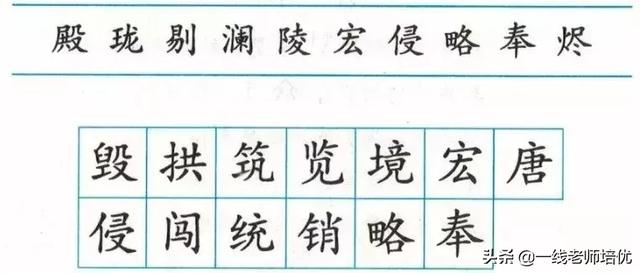 殿珑剔澜陵宏侵略奉烬
毁拱筑览境宏唐
侵闯统销略奉
头条 @一线老师培优